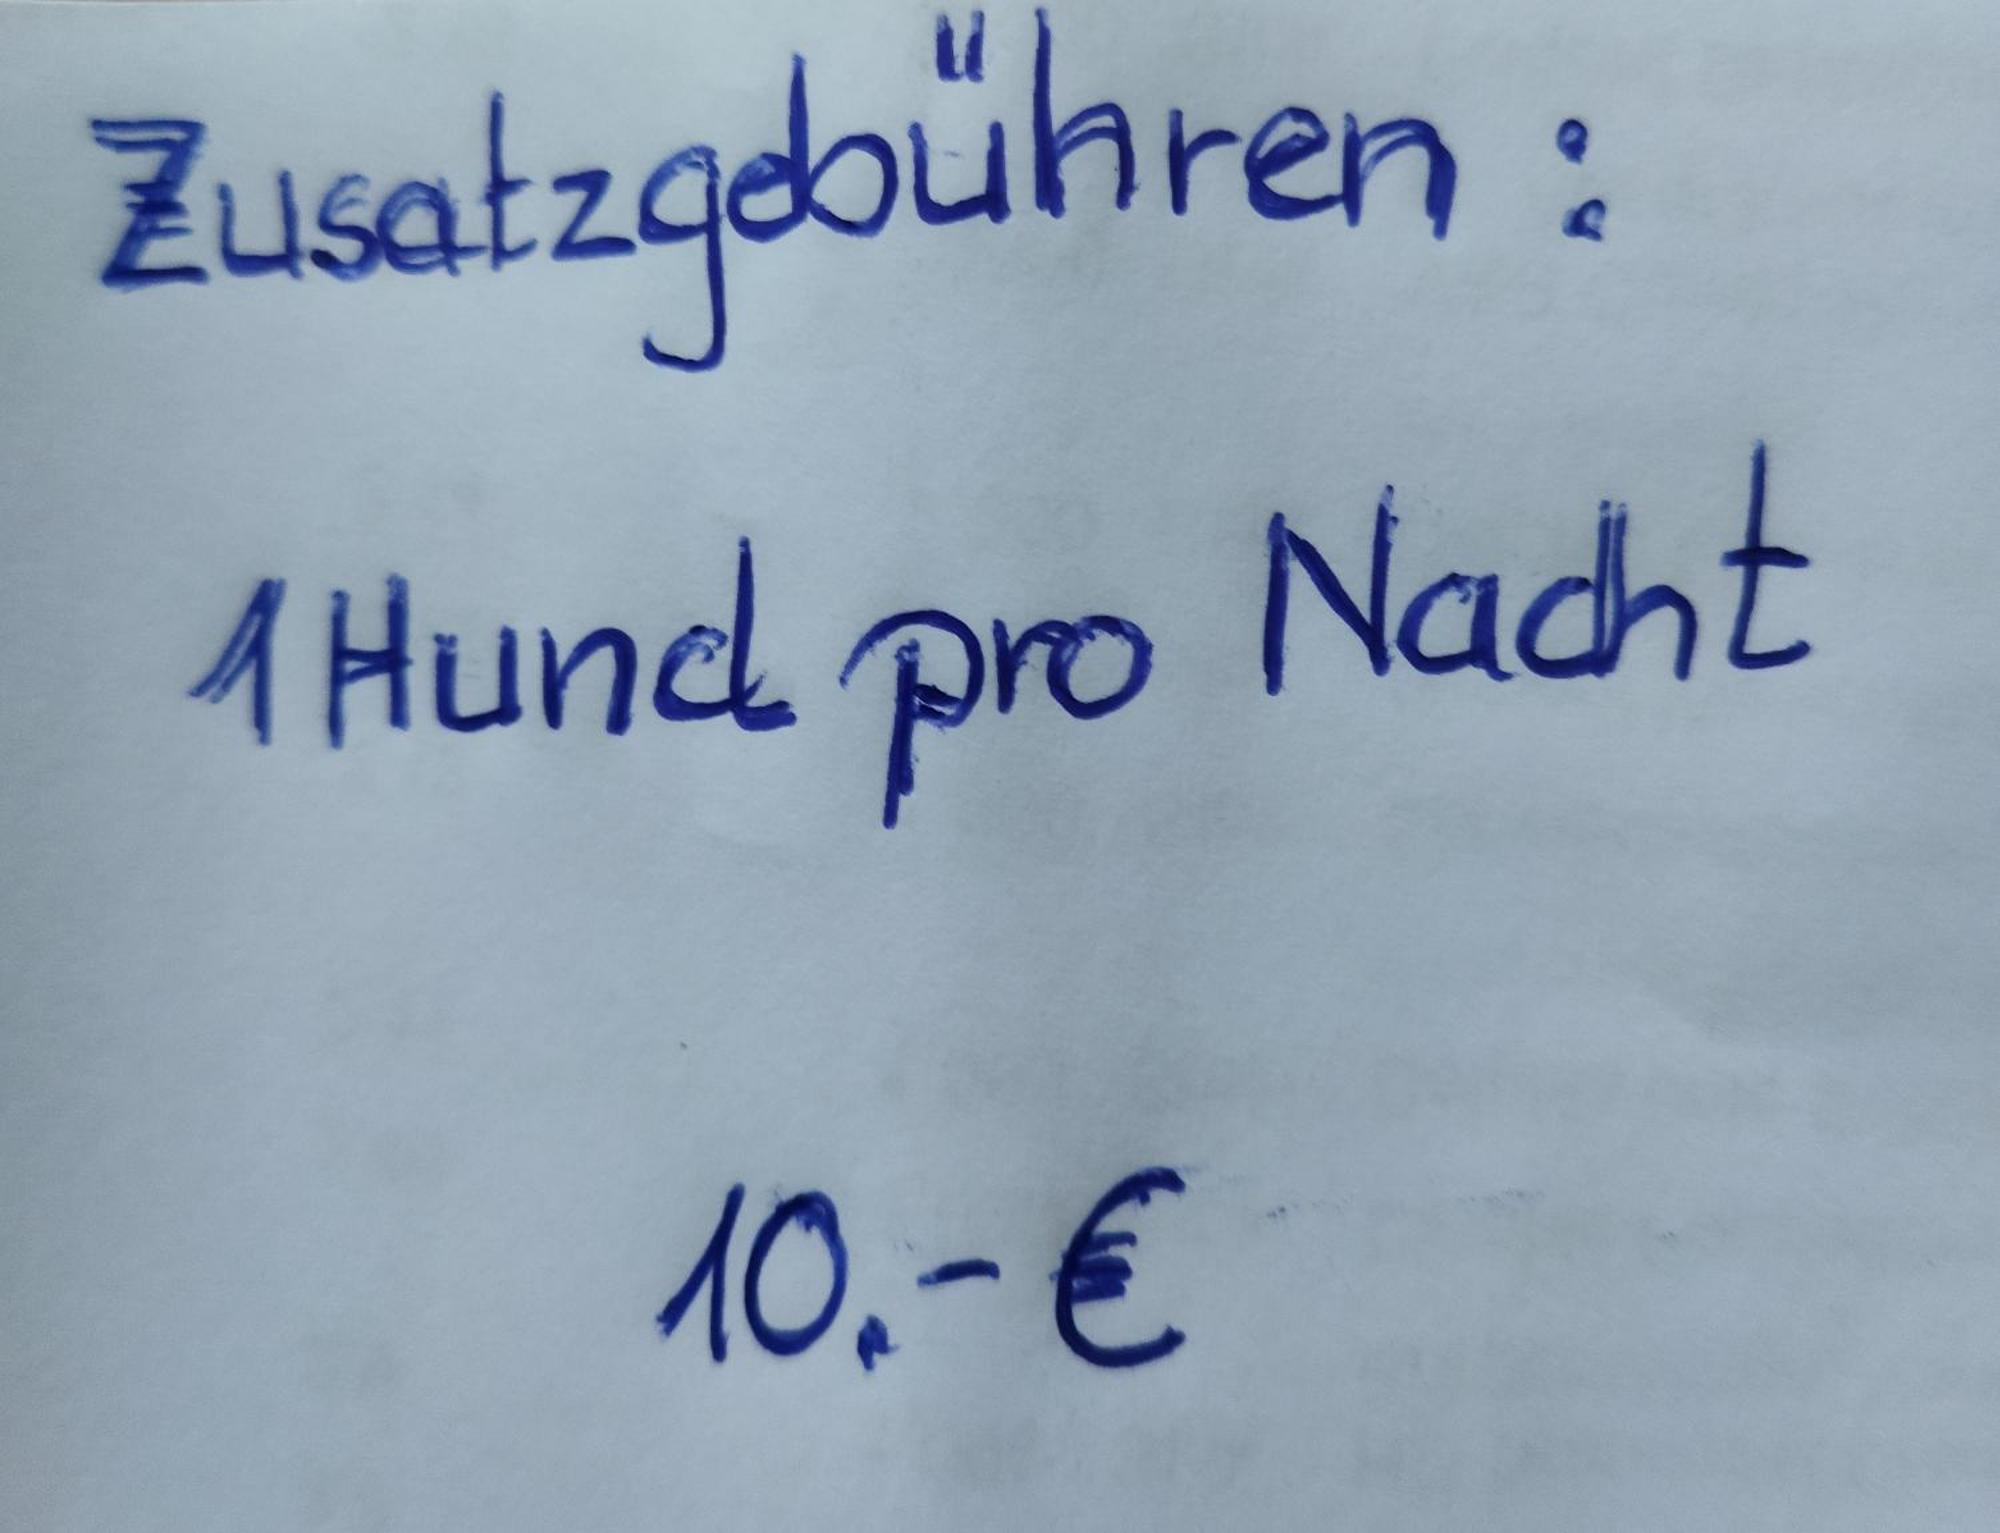 Zusatzgebühren :
1 Hund pro Nacht
10.- €